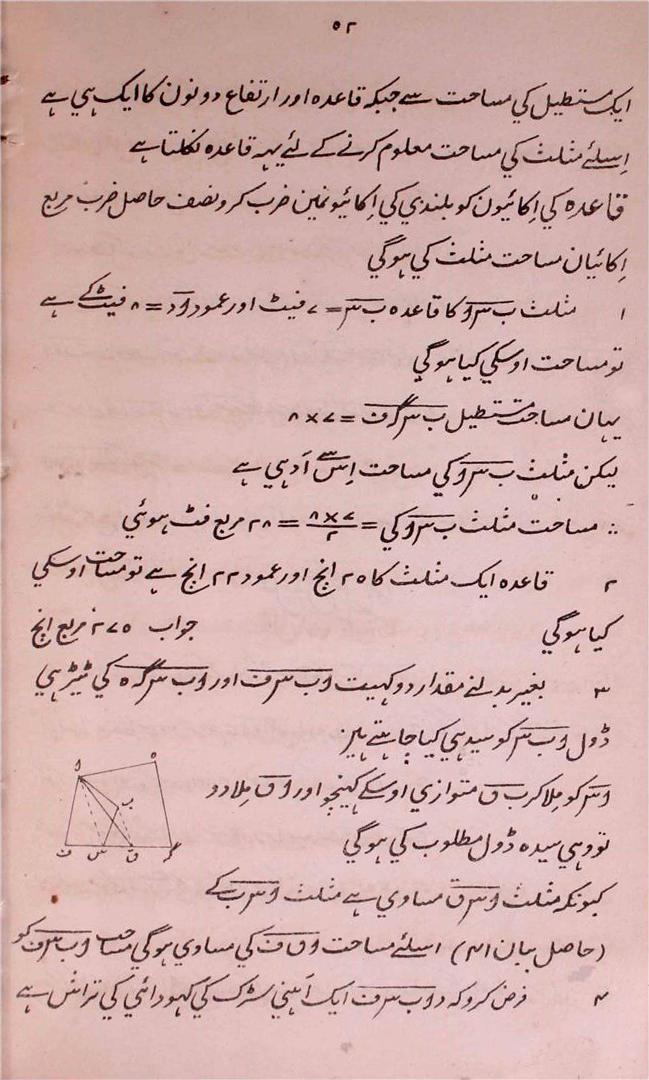 ۵۲
ایک مستطیل کي مساحت سے جبکہ قاعدہ اور ارتفاع دونون کا ایک ہي ہے
اِسلئے مثلث کي مساحت معلوم کرنے کے لئے یہہ قاعدہ نکلتا ہے
قاعدہ کي اِکائیون کو بلندي کي اِکائیونمین ضرب کرو نصف حاصل ضرب مربع
اِکائیان مساحت مثلث کي ہوگي
۱ مثلث ب س و کا قاعدہ ب س = ۷ فیٹ اور عمود و د = ۸ فیٹ کے ہے
تو مساحت اوسکي کیا ہوگي
یہان مساحت مستطیل ب س گ ف = ۷ × ۸
لیکن مثلث ب س و کي مساحت اِس سے آدہي ہے
∴ مساحت مثلث ب س و کي = ۷ × ۸ / ۲ = ۲۸ مربع فٹ ہوئي
۲ قاعدہ ایک مثلث کا ۲۵ انچ اور عمود ۲۲ انچ ہے تو مساحت اوسکي
کیا ہوگي جواب ۲۷۵ مربع انچ
۳ بغیر بدلنے مقدار دو کہیت و ب س ف اور و ب س گ ہ کي ٹیڑہي
ڈول و ب س کو سیدہي کیا چاہتے ہین
و س کو مِلا کر ب ق متوازي اوسکے کہینچو اور و ق مِلا دو
تو وہي سیدہ ڈول مطلوب کي ہوگي
و ہ
ب
ف س ق گ
کیونکہ مثلث و س ق مساوي ہے مثلث و س ب کے
(حاصل بیان ۴۱) اسلئے مساحت و ق ف کي مساوي ہوگي مساحت و ب س ف کو
۴ فرض کرو کہ د و ب س ف ایک آہني سڑک کي کہودائي کي تراش ہے